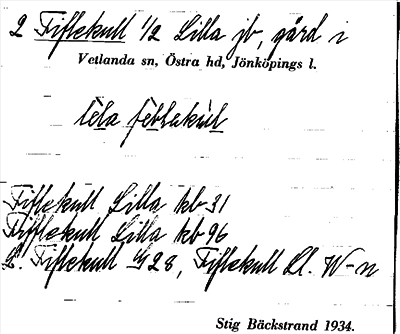 2 Fiflekull 1/2 Lilla jb, gård i
Vetlanda sn, Östra hd, Jönköpings l.
lẹla
Fiflekull Lilla kb 31
Fifflekull Lilla kb 96
L. Fiflekull GS 28, Fiflekull Ll. W-n
Stig Bäckstrand 1934.